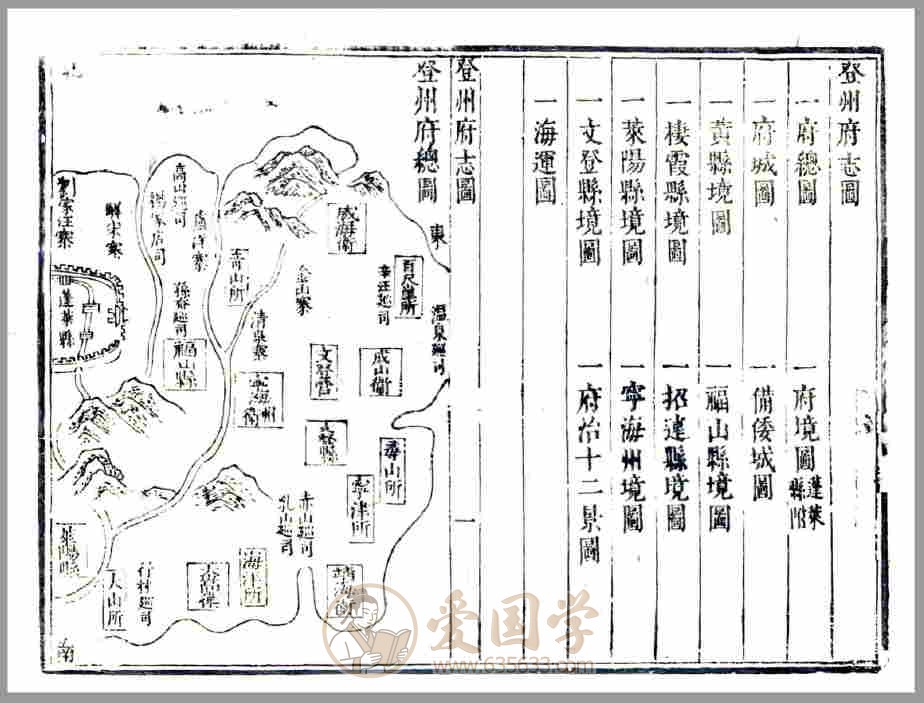 登州府志圖
一府總圖
一府境圖 蓬萊縣附
一府城圖
一備倭城圖
一黃縣境圖
一福山縣境圖
一棲霞縣境圖
一招遠縣境圖
一萊陽縣境圖
一寧海州境圖
一文登縣境圖
一府治十二景圖
一海運圖
登州府志圖
一
登州府總圖
東
溫泉巡司
百尺崖所
辛汪巡司
威海衛
成山衛
尋山所
寧津所
靖海衛
金山寨
文登營
文登縣
赤山巡司
乳山巡司
清泉寨
寧海州
衛
海洋所
大嵩衛
奇山所
盧洋寨
高山巡司
孫夼巡司
福山縣
行村巡司
大山所
解宋寨
劉家汪寨
蓬萊縣
萊陽縣
北
南
爱国学
www.635633.com